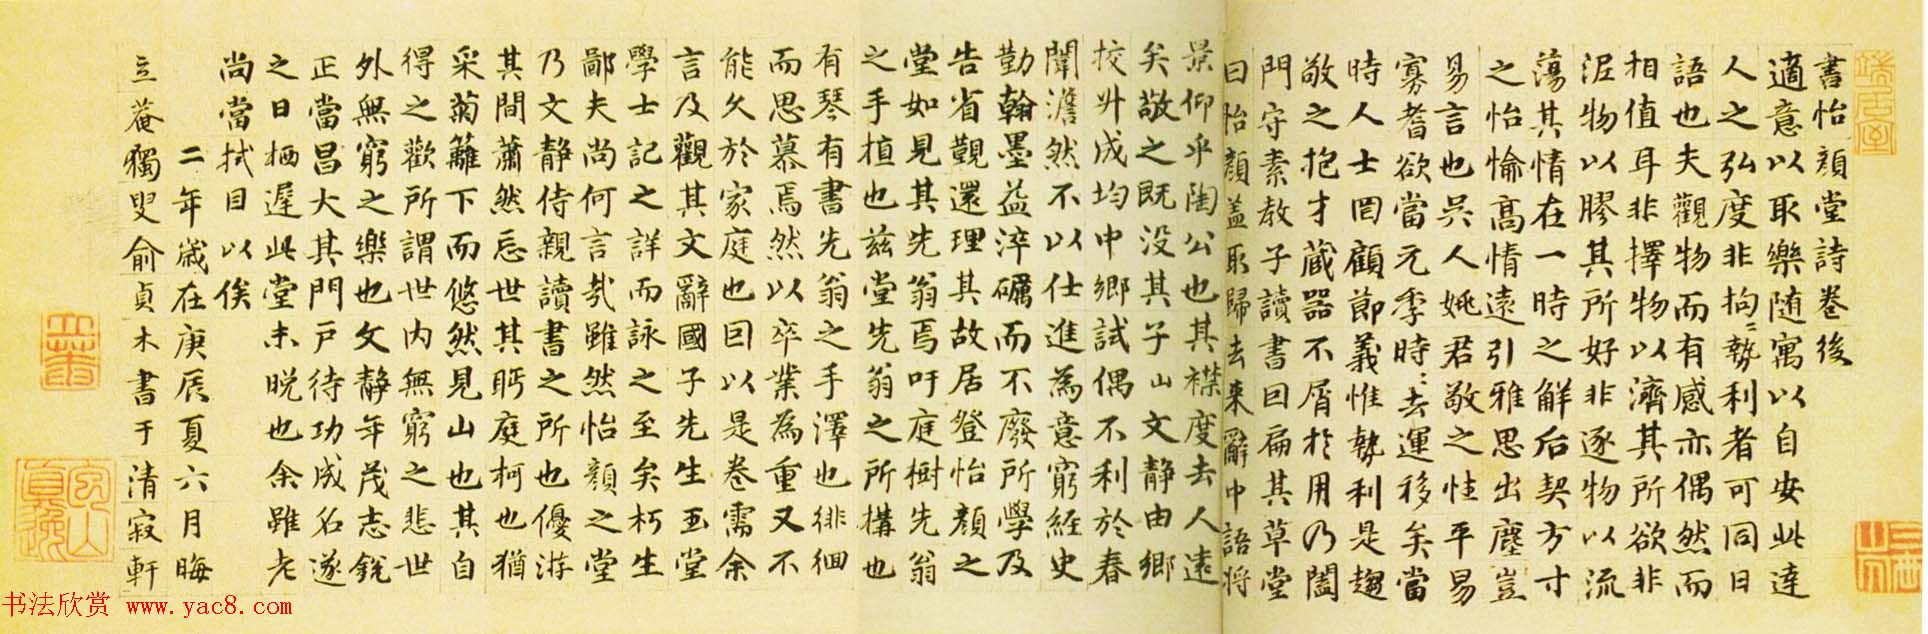 書怡顏堂詩卷後
適意以取樂随寓以自安此達
人之弘度非拘〻勢利者可同日
語也夫觀物而有感亦偶然而
相值耳非擇物以濟其所欲非
泥物以膠其所好非逐物以流
蕩其情在一時之解后契方寸
之怡愉高情遠引雅思出塵豈
易言也吳人姚君敬之性平易
寡耆欲當元季時〻去運移矣當
時人士罔顧節義惟勢利是趨
敬之抱才蔵器不屑於用乃闔
門守素教子讀書回扁其草堂
曰怡顏蓋取歸去来辭中語将
景仰乎陶公也其襟度去人遠
矣敬之既没其子山文静由鄉
校升成均中鄉試偶不利於春
闈澹然不以仕進為意窮經史
勤翰墨益淬礪而不廢所學及
告省覲還理其故居登怡顏之
堂如見其先翁焉吁庭樹先翁
之手植也兹堂先翁之所構也
有琴有書先翁之手澤也徘徊
而思慕焉然以卒業為重又不
能久於家庭也囙以是卷需余
言及觀其文辭國子先生玉堂
學士記之詳而詠之至矣朽生
鄙夫尚何言哉雖然怡顏之堂
乃文静侍親讀書之所也優游
其間蕭然忘世其眄庭柯也猶
采菊籬下而悠然見山也其自
得之歡所謂世内無窮之悲世
外無窮之樂也文静年茂志銳
正當昌大其門戸待功成名遂
之日栖遲此堂未晚也余雖老
尚當拭目以俟
二年歲在庚辰夏六月晦
立菴獨叟俞貞木書于清寂軒
书法欣赏 www.yac8.com